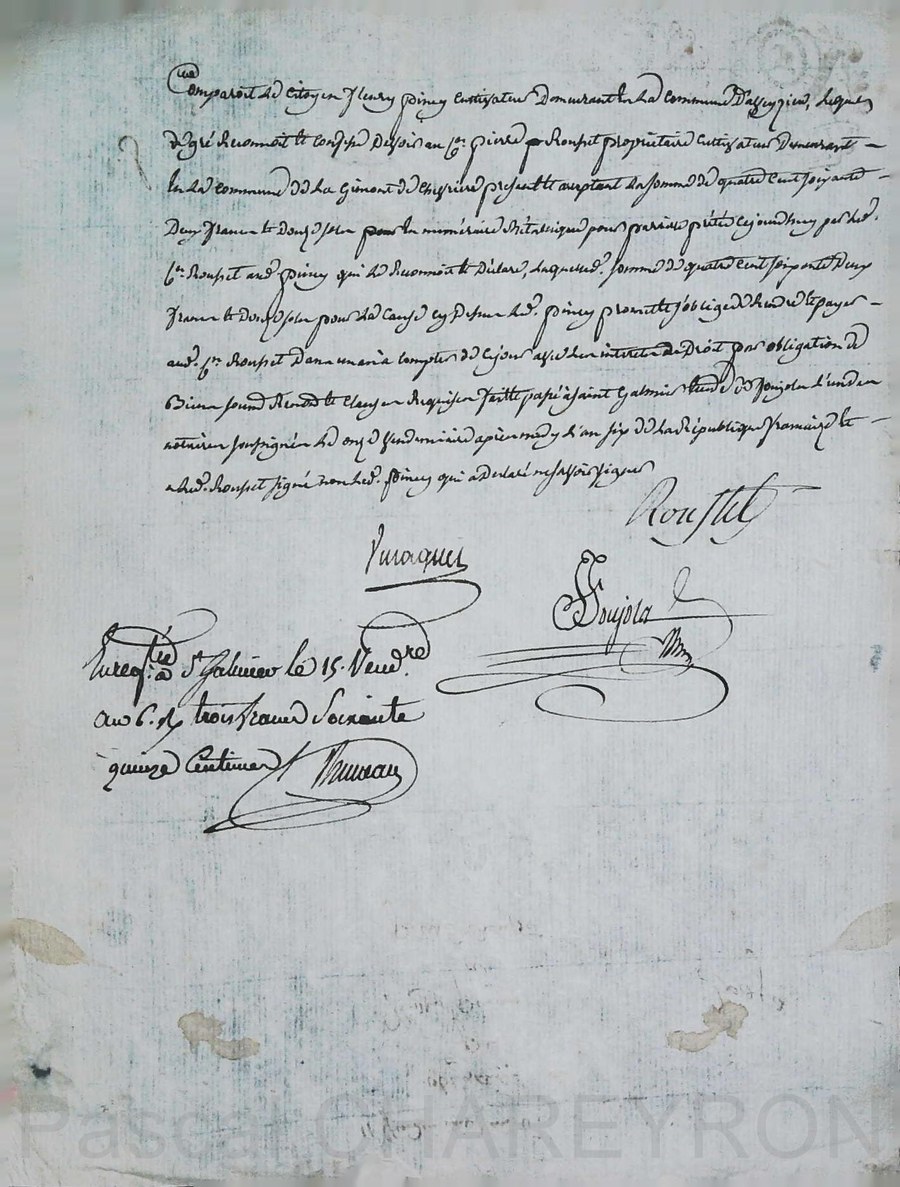 Comparoit le Citoyen fleury piney Cultivateur Demeurant En La Commune D'aveyzieu, Lequel
de gré Reconnoit et Confesse Devoir au Cen. pierre Rousset propriétaire Cultivateur Demeurant
En la Commune de La Gimont de Chevriere present et acceptant La somme de quatre Cent soixante
Deux francs et Douze sols En numéraire Métallique pour pareille prêtée Cejourd'huy par led.
Cen. Rousset aud. piney qui Le Reconnoit et Déclare, Laquelle d. somme de quatre Cent soixante Deux
francs et Douze sols pour La Cause cy Dessus Led. piney promet et s'oblige de Rendre et payer
aud. Cen. Rousset Dans un an à Compter de Cejour avec Les interets de Droit par obligation de
Biens soumis Renond. et Clauses Requises fait et passé à saint Galmier Etude de Soujola L'un des
notaires soussignés Le onze Vendemiaire apres midy L'an six de La République françaize et
a Led. Rousset signé non Led. piney qui a Declaré ne savoir signer
Rousset
Soujola
Enregtré à St Galmier le 15. Vendre.
an 6. R. trois francs Soixante
quinze Centimes
Pascal CHAREYRON